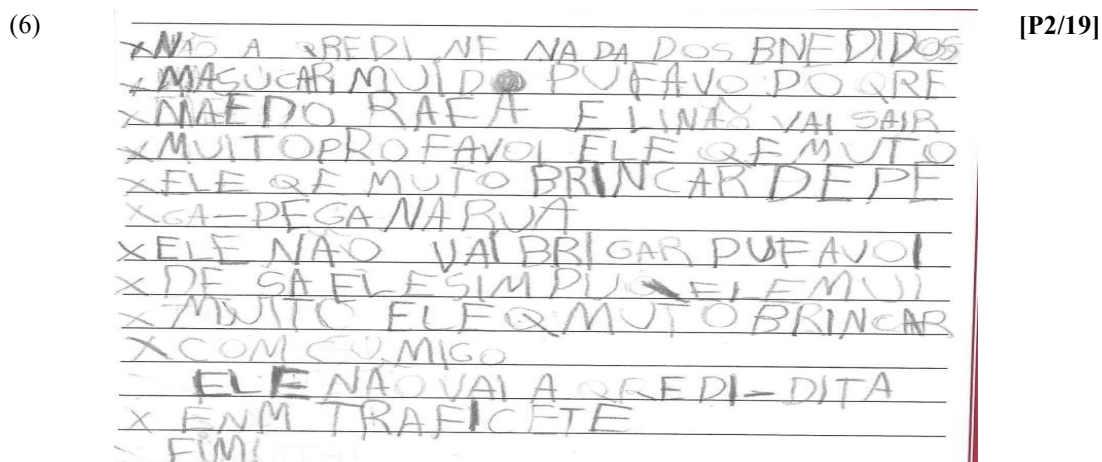 (6) [P2/19]
xNÃO A QREDI NE NADA DOS BNEDIDOS
xMASUCAR MUIDO PUFAVO PO QRE
xMAEDO RAFEA ELINÃO VAI SAIR
xMUITOPROFAVOI ELE QE MUTO
xELE QE MUTO BRINCAR DE PE
XGA-PEGA NA RUA
XELE NÃO VAI BRIGAR PUFAVOI
x DE SA ELE SIM PUQ ELE MUI
x MUITO ELE Q MUTO BRINCAR
X COM CUMIGO
ELE NÃO VAI A QREDI-DITA
X ENM TRAFICETE
x FIM!